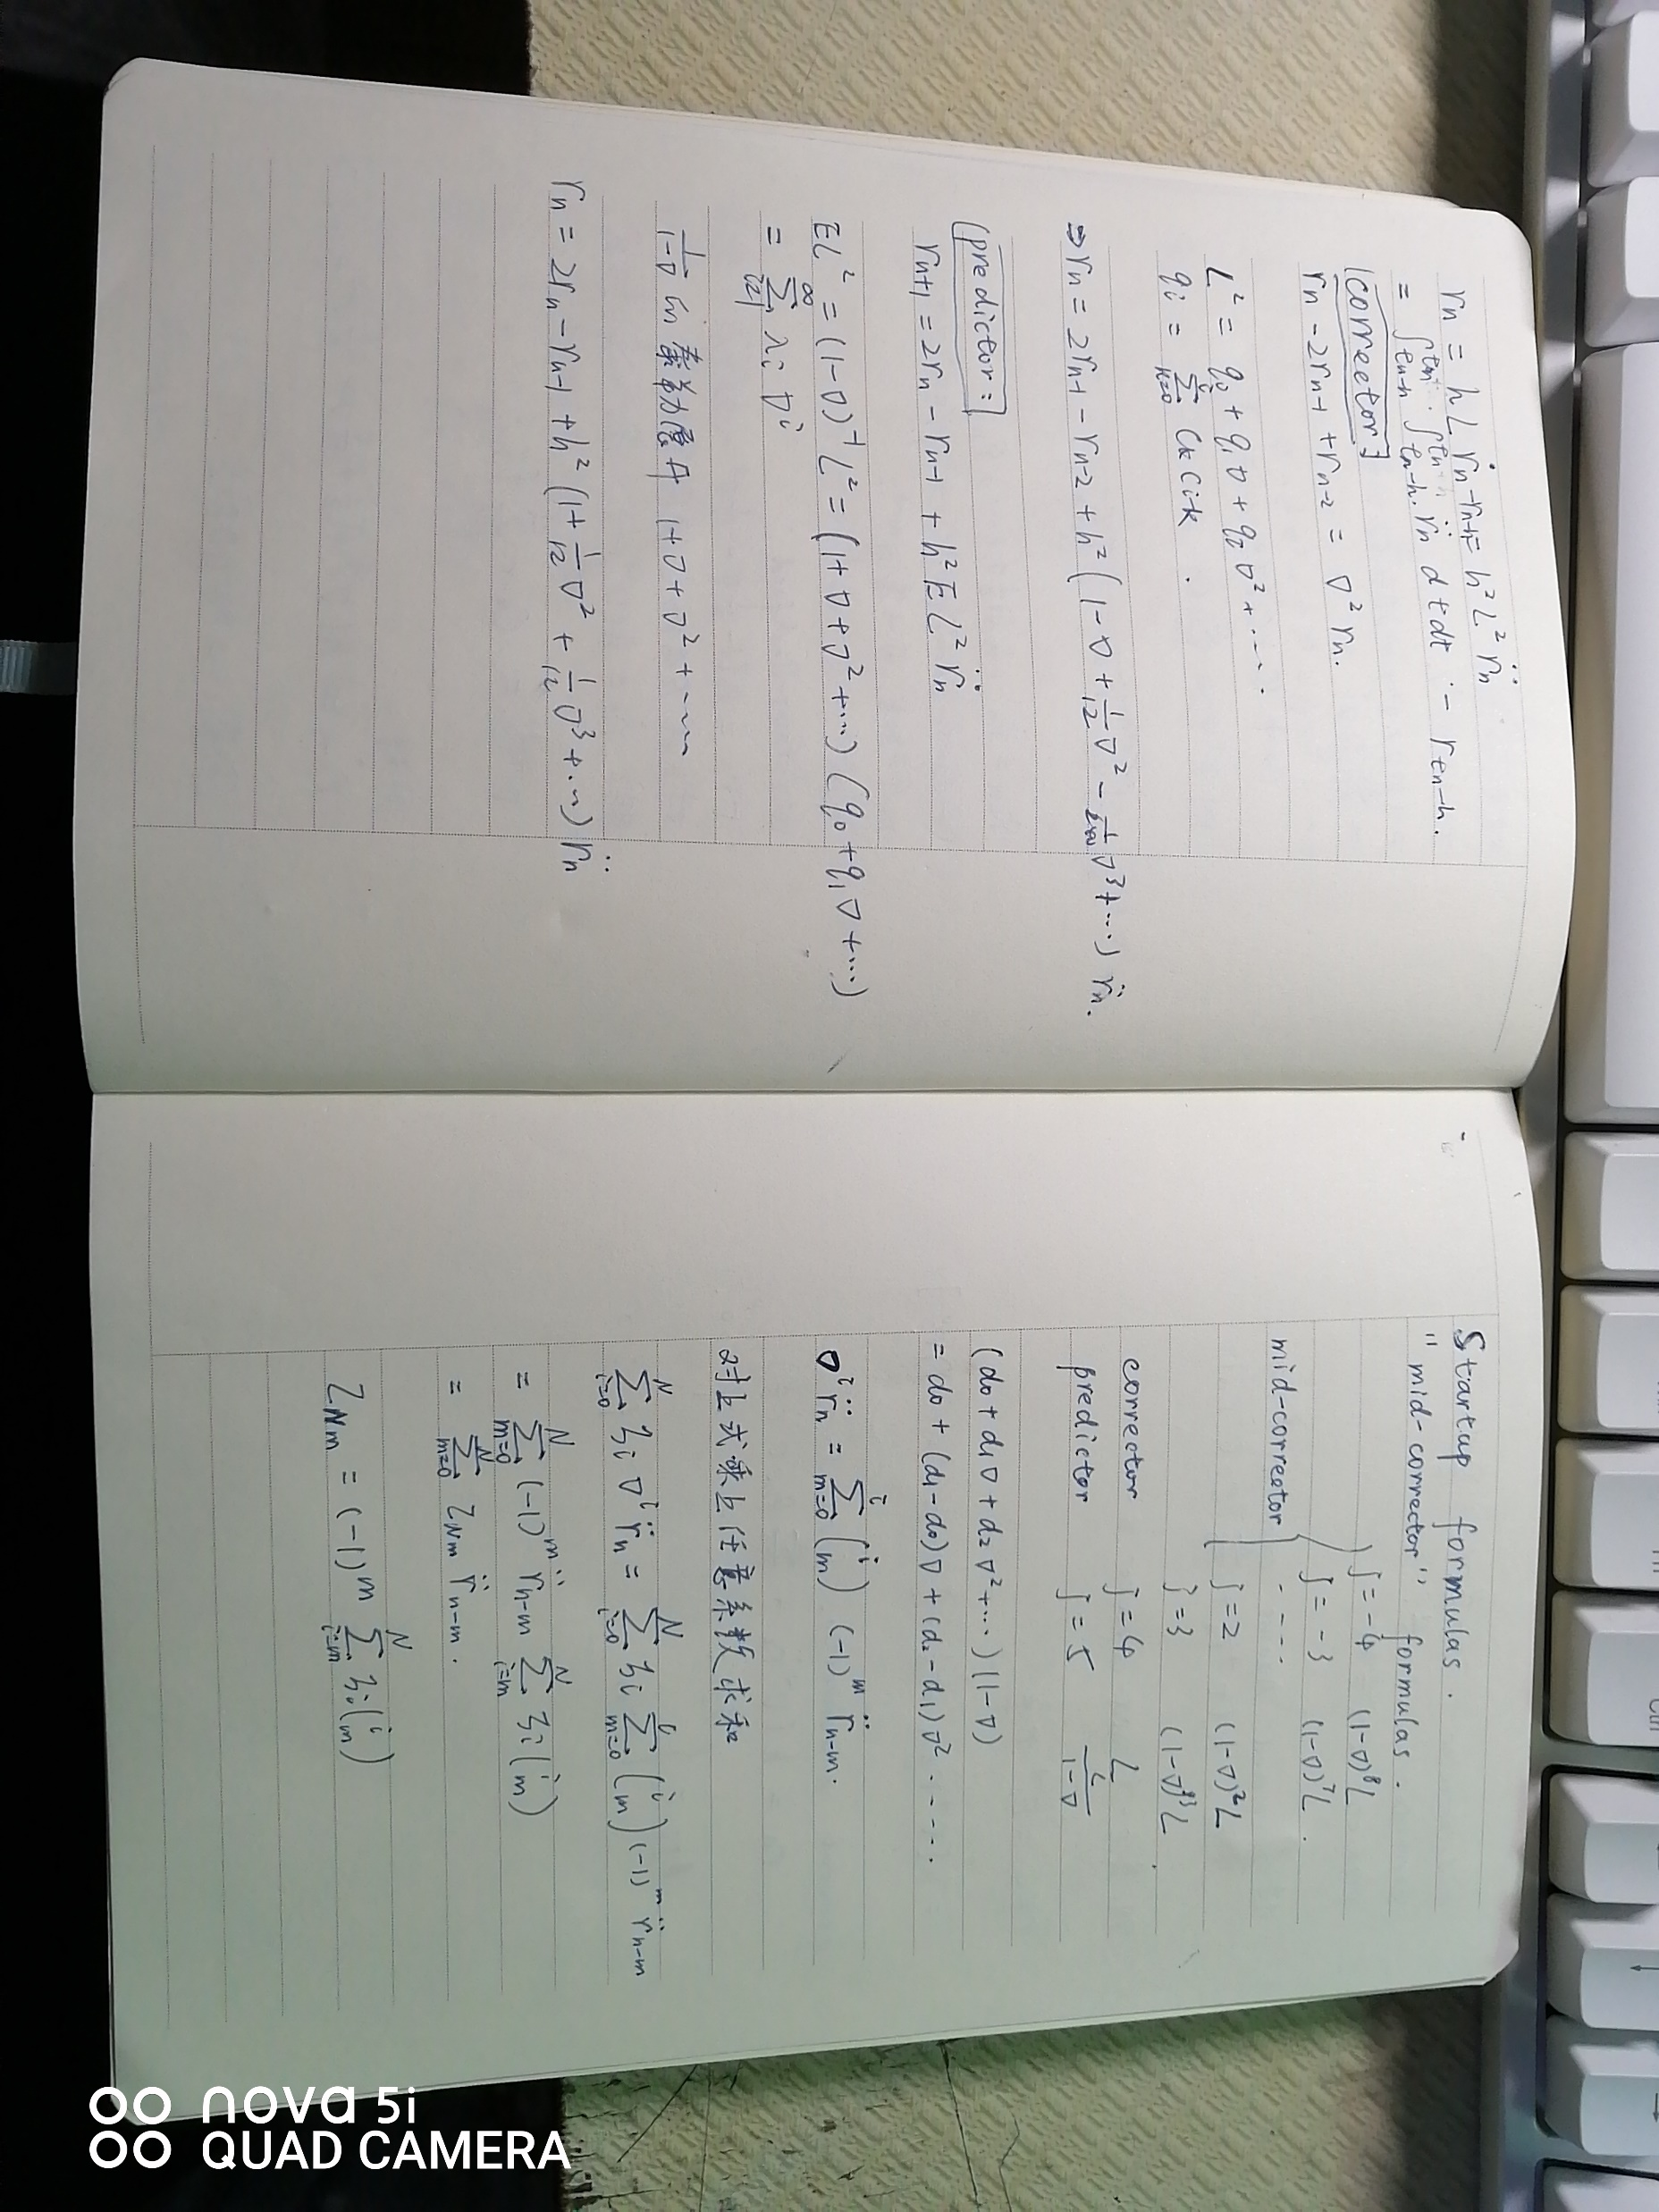 rn = hL ṙn - rn-1 = h²L² r̈n
= ∫tn-h tn · ∫tn-h tn r̈n dtdt - r tn-h.
(corrector)
rn - 2rn-1 + rn-2 = ∇² rn.
L² = q0 + q1∇ + q2∇² + ....
qi = Σ k=0 i Ck Ci-k .
⇒ rn = 2rn-1 - rn-2 + h² (1 - ∇ + 1/12 ∇² - 1/240 ∇³ + ...) r̈n.
(predictor:)
rn+1 = 2rn - rn-1 + h² E L² r̈n
EL² = (1-∇)⁻¹ L² = (1 + ∇ + ∇² + ...) (q0 + q1∇ + ...)
= Σ i=1 ∞ λi ∇ⁱ
1/1-∇ 的泰勒展开 1 + ∇ + ∇² + ...
rn = 2rn - rn-1 + h² (1 + 1/12 ∇² + 1/12 ∇³ + ...) r̈n
Startup formulas.
"mid-corrector" formulas.
j = -4 (1-∇)⁸L
j = -3 (1-∇)⁷L.
mid-corrector . ....
j = 2 (1-∇)²L
j = 3 (1-∇)L
corrector j = 4 L
predictor j = 5 L/1-∇
(d0 + d1∇ + d2∇² + ...) (1-∇)
= d0 + (d1-d0)∇ + (d2-d1)∇² ......
∇ⁱ r̈n = Σ m=0 i (i m) (-1)ᵐ r̈n-m.
对上式乘上任意系数求和
Σ i=0 N ξi ∇ⁱ r̈n = Σ i=0 N ξi Σ m=0 i (i m) (-1)ᵐ r̈n-m
= Σ m=0 N (-1)ᵐ r̈n-m Σ i=m N ξi (i m)
= Σ m=0 N ZNm r̈n-m.
ZNm = (-1)ᵐ Σ i=m N ξi (i m)
nova 5i
QUAD CAMERA